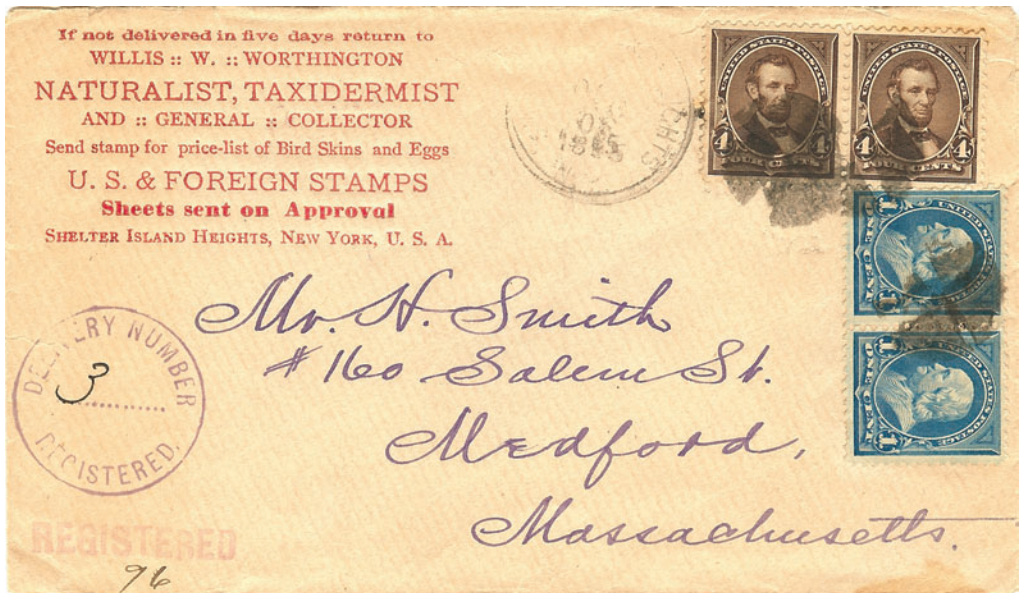 If not delivered in five days return to
WILLIS :: W. :: WORTHINGTON
NATURALIST, TAXIDERMIST
AND :: GENERAL :: COLLECTOR
Send stamp for price-list of Bird Skins and Eggs
U. S. & FOREIGN STAMPS
Sheets sent on Approval
SHELTER ISLAND HEIGHTS, NEW YORK, U. S. A.
UNITED STATES POSTAGE
4 4
FOUR CENTS
UNITED STATES POSTAGE
4 4
FOUR CENTS
UNITED STATES POSTAGE
1 1
ONE CENT
UNITED STATES POSTAGE
1 1
ONE CENT
Mr. H. Smith
# 160 Salem St.
Medford,
Massachusetts.
DELIVERY NUMBER
3
REGISTERED.
REGISTERED
96